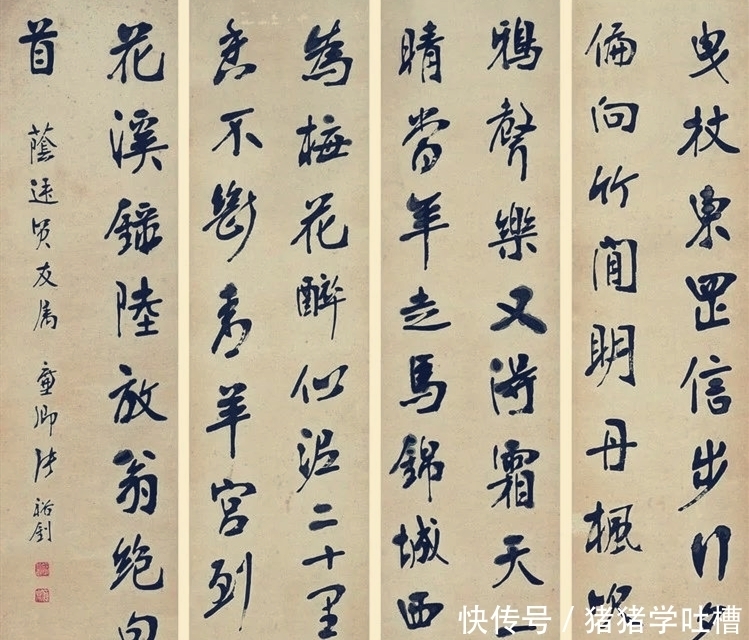 曳杖東罡信步行
偏向竹間明丹楓
鴉聲樂又得霜天
晴當年走馬錦城西
為梅花醉似泥二十里
香不斷青羊宮到
花溪錄陸放翁絕句
首
蔭 賢友屬 廉卿張裕釗
快传号 / 猪猪学吐槽